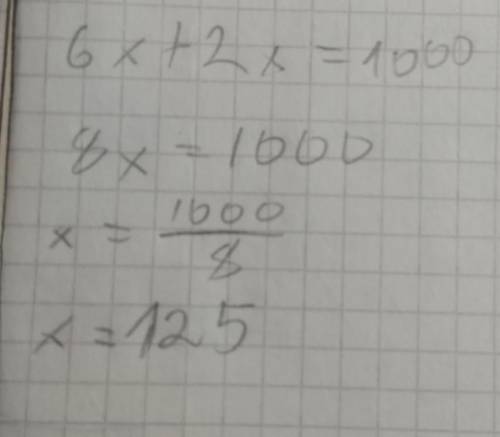 6x+2x=1000
8x=1000
x=1000/8
x=125